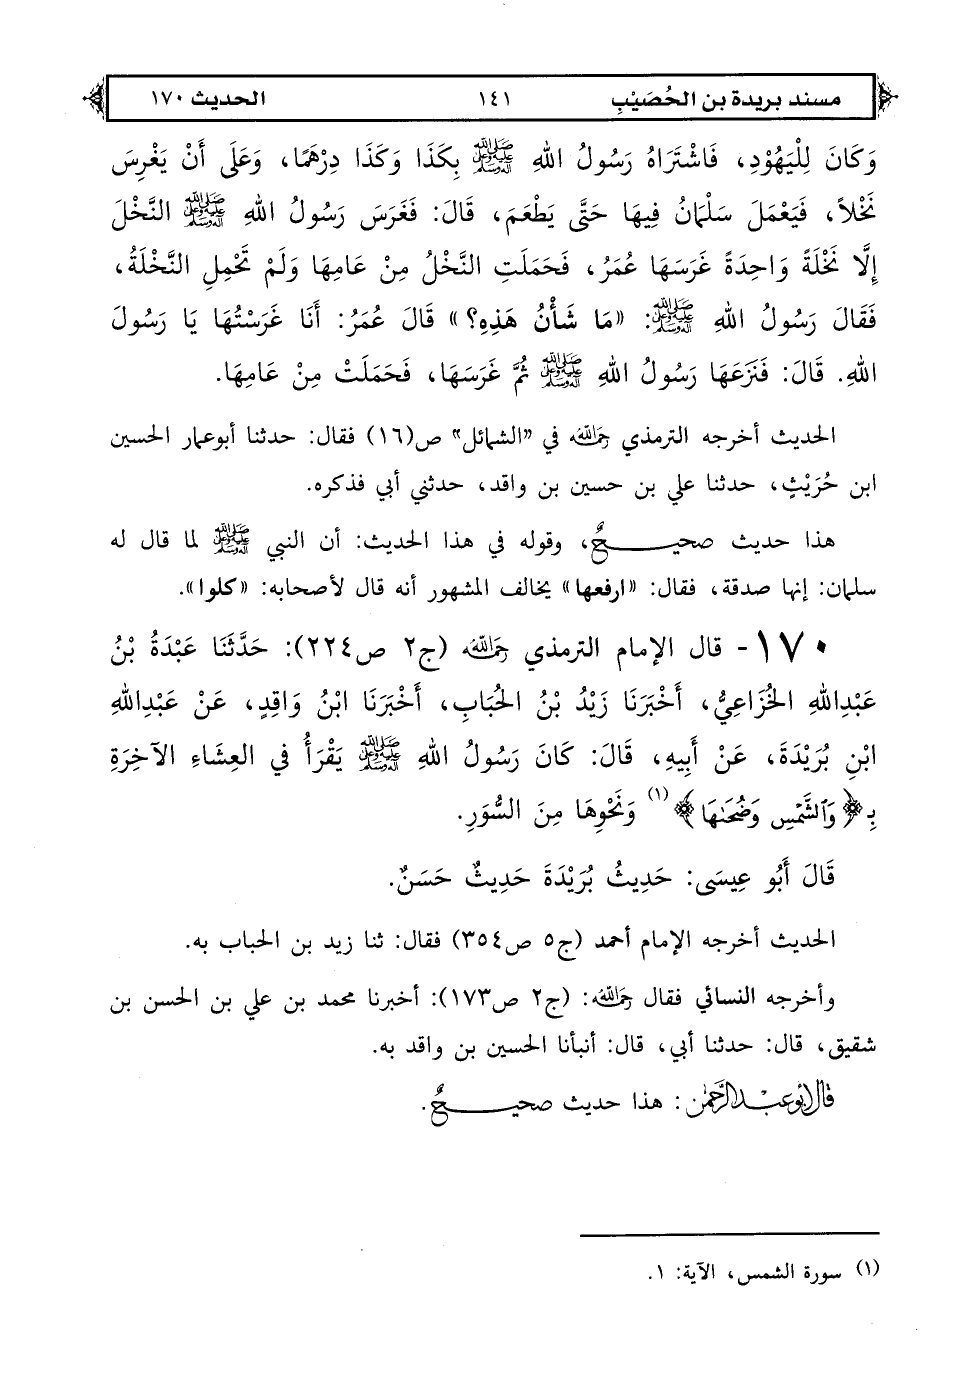 مسند بريدة بن الحُصَيْبِ ١٤١ الحديث ١٧٠
وَكَانَ لِلْيَهُوْدِ، فَاشْتَرَاهُ رَسُولُ اللهِ ﷺ بِكَذَا وَكَذَا دِرْهَمًا، وَعَلَى أَنْ يَغْرِسَ
نَخْلاً، فَيَعْمَلَ سَلْمَانُ فِيهَا حَتَّى يَطْعَمَ، قَالَ: فَغَرَسَ رَسُولُ اللهِ ﷺ النَّخْلَ
إِلَّا نَخْلَةً وَاحِدَةً غَرَسَهَا عُمَرُ، فَحَمَلَتِ النَّخْلُ مِنْ عَامِهَا وَلَمْ تَحْمِلِ النَّخْلَةُ،
فَقَالَ رَسُولُ اللهِ ﷺ: «مَا شَأْنُ هَذِهِ؟» قَالَ عُمَرُ: أَنَا غَرَسْتُهَا يَا رَسُولَ
اللهِ. قَالَ: فَنَزَعَهَا رَسُولُ اللهِ ﷺ ثُمَّ غَرَسَهَا، فَحَمَلَتْ مِنْ عَامِهَا.
الحديث أخرجه الترمذي رحمه الله في «الشمائل» ص(١٦) فقال: حدثنا أبوعمار الحسين
ابن حُرَيْثٍ، حدثنا علي بن حسين بن واقد، حدثني أبي فذكره.
هذا حديث صحيــــــحٌ، وقوله في هذا الحديث: أن النبي ﷺ لما قال له
سلمان: إنها صدقة، فقال: «ارفعها» يخالف المشهور أنه قال لأصحابه: «كلوا».
١٧٠- قال الإمام الترمذي رحمه الله (ج٢ ص٢٢٤): حَدَّثَنَا عَبْدَةُ بْنُ
عَبْدِاللهِ الخُزَاعِيُّ، أَخْبَرَنَا زَيْدُ بْنُ الحُبَابِ، أَخْبَرَنَا ابْنُ وَاقِدٍ، عَنْ عَبْدِاللهِ
ابْنِ بُرَيْدَةَ، عَنْ أَبِيهِ، قَالَ: كَانَ رَسُولُ اللهِ ﷺ يَقْرَأُ فِي العِشَاءِ الآخِرَةِ
بِـ﴿وَٱلشَّمْسِ وَضُحَىٰهَا﴾(١) وَنَحْوِهَا مِنَ السُّوَرِ.
قَالَ أَبُو عِيسَى: حَدِيثُ بُرَيْدَةَ حَدِيثٌ حَسَنٌ.
الحديث أخرجه الإمام أحمد (ج٥ ص٣٥٤) فقال: ثنا زيد بن الحباب به.
وأخرجه النسائي فقال رحمه الله: (ج٢ ص١٧٣): أخبرنا محمد بن علي بن الحسن بن
شقيق، قال: حدثنا أبي، قال: أنبأنا الحسين بن واقد به.
قال أبو عبدالرحمٰن: هذا حديث صحيــــــحٌ.
(١) سورة الشمس، الآية: ١.